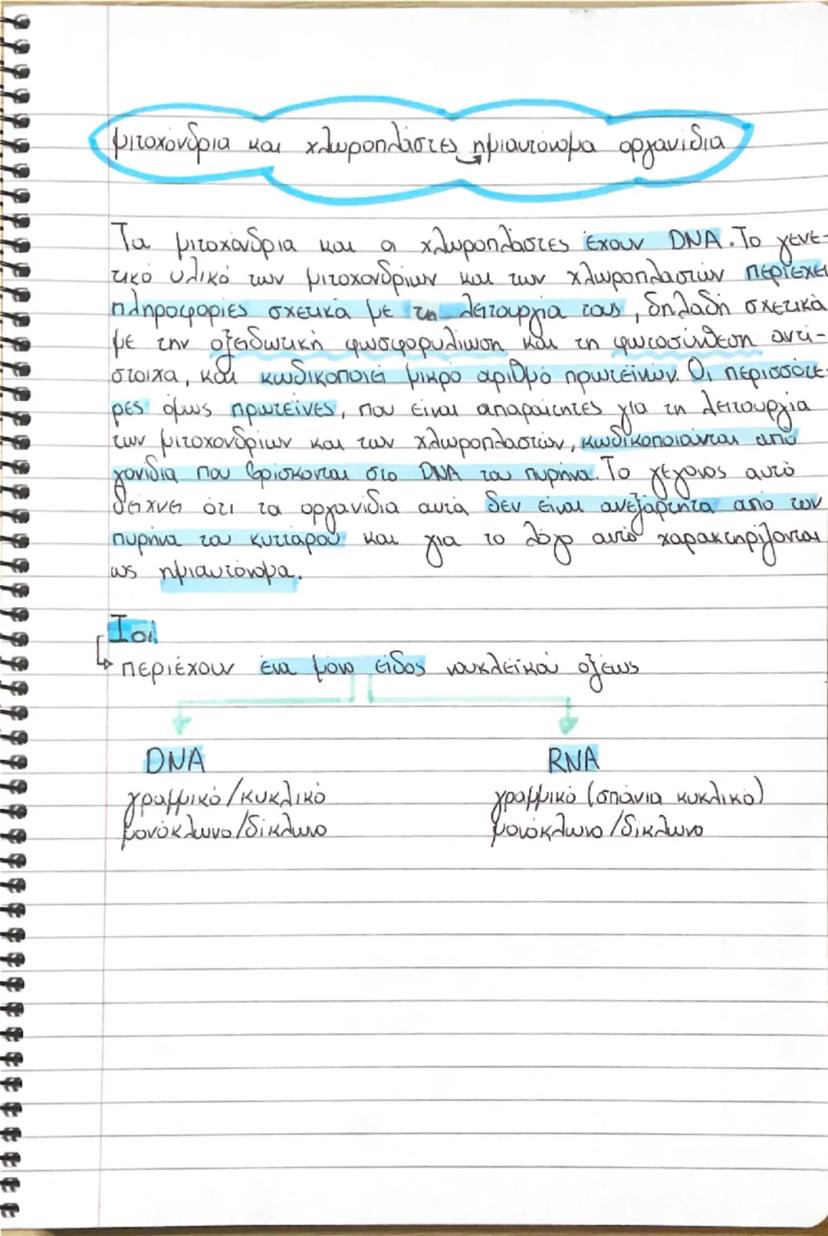 μιτοχόνδρια και χλωροπλάστες ημιαυτόνομα οργανίδια
Τα μιτοχόνδρια και οι χλωροπλάστες έχουν DNA. Το γενε-
τικό υλικό των μιτοχονδρίων και των χλωροπλαστών περιέχει
πληροφορίες σχετικά με τη λειτουργία τους, δηλαδή σχετικά
με την οξειδωτική φωσφορυλίωση και τη φωτοσύνθεση αντί-
στοιχα, και κωδικοποιεί μικρό αριθμό πρωτεϊνών. Οι περισσότε-
ρες όμως πρωτεΐνες, που είναι απαραίτητες για τη λειτουργία
των μιτοχονδρίων και των χλωροπλαστών, κωδικοποιούνται από
γονίδια που βρίσκονται στο DNA του πυρήνα. Το γεγονός αυτό
δείχνει ότι τα οργανίδια αυτά δεν είναι ανεξάρτητα από τον
πυρήνα του κυττάρου και για το λόγο αυτό χαρακτηρίζονται
ως ημιαυτόνομα.
Ιοί
περιέχουν ένα μόνο είδος νουκλεϊκού οξέως
DNA RNA
γραμμικό/κυκλικό γραμμικό (σπάνια κυκλικό)
μονόκλωνο/δίκλωνο μονόκλωνο/δίκλωνο